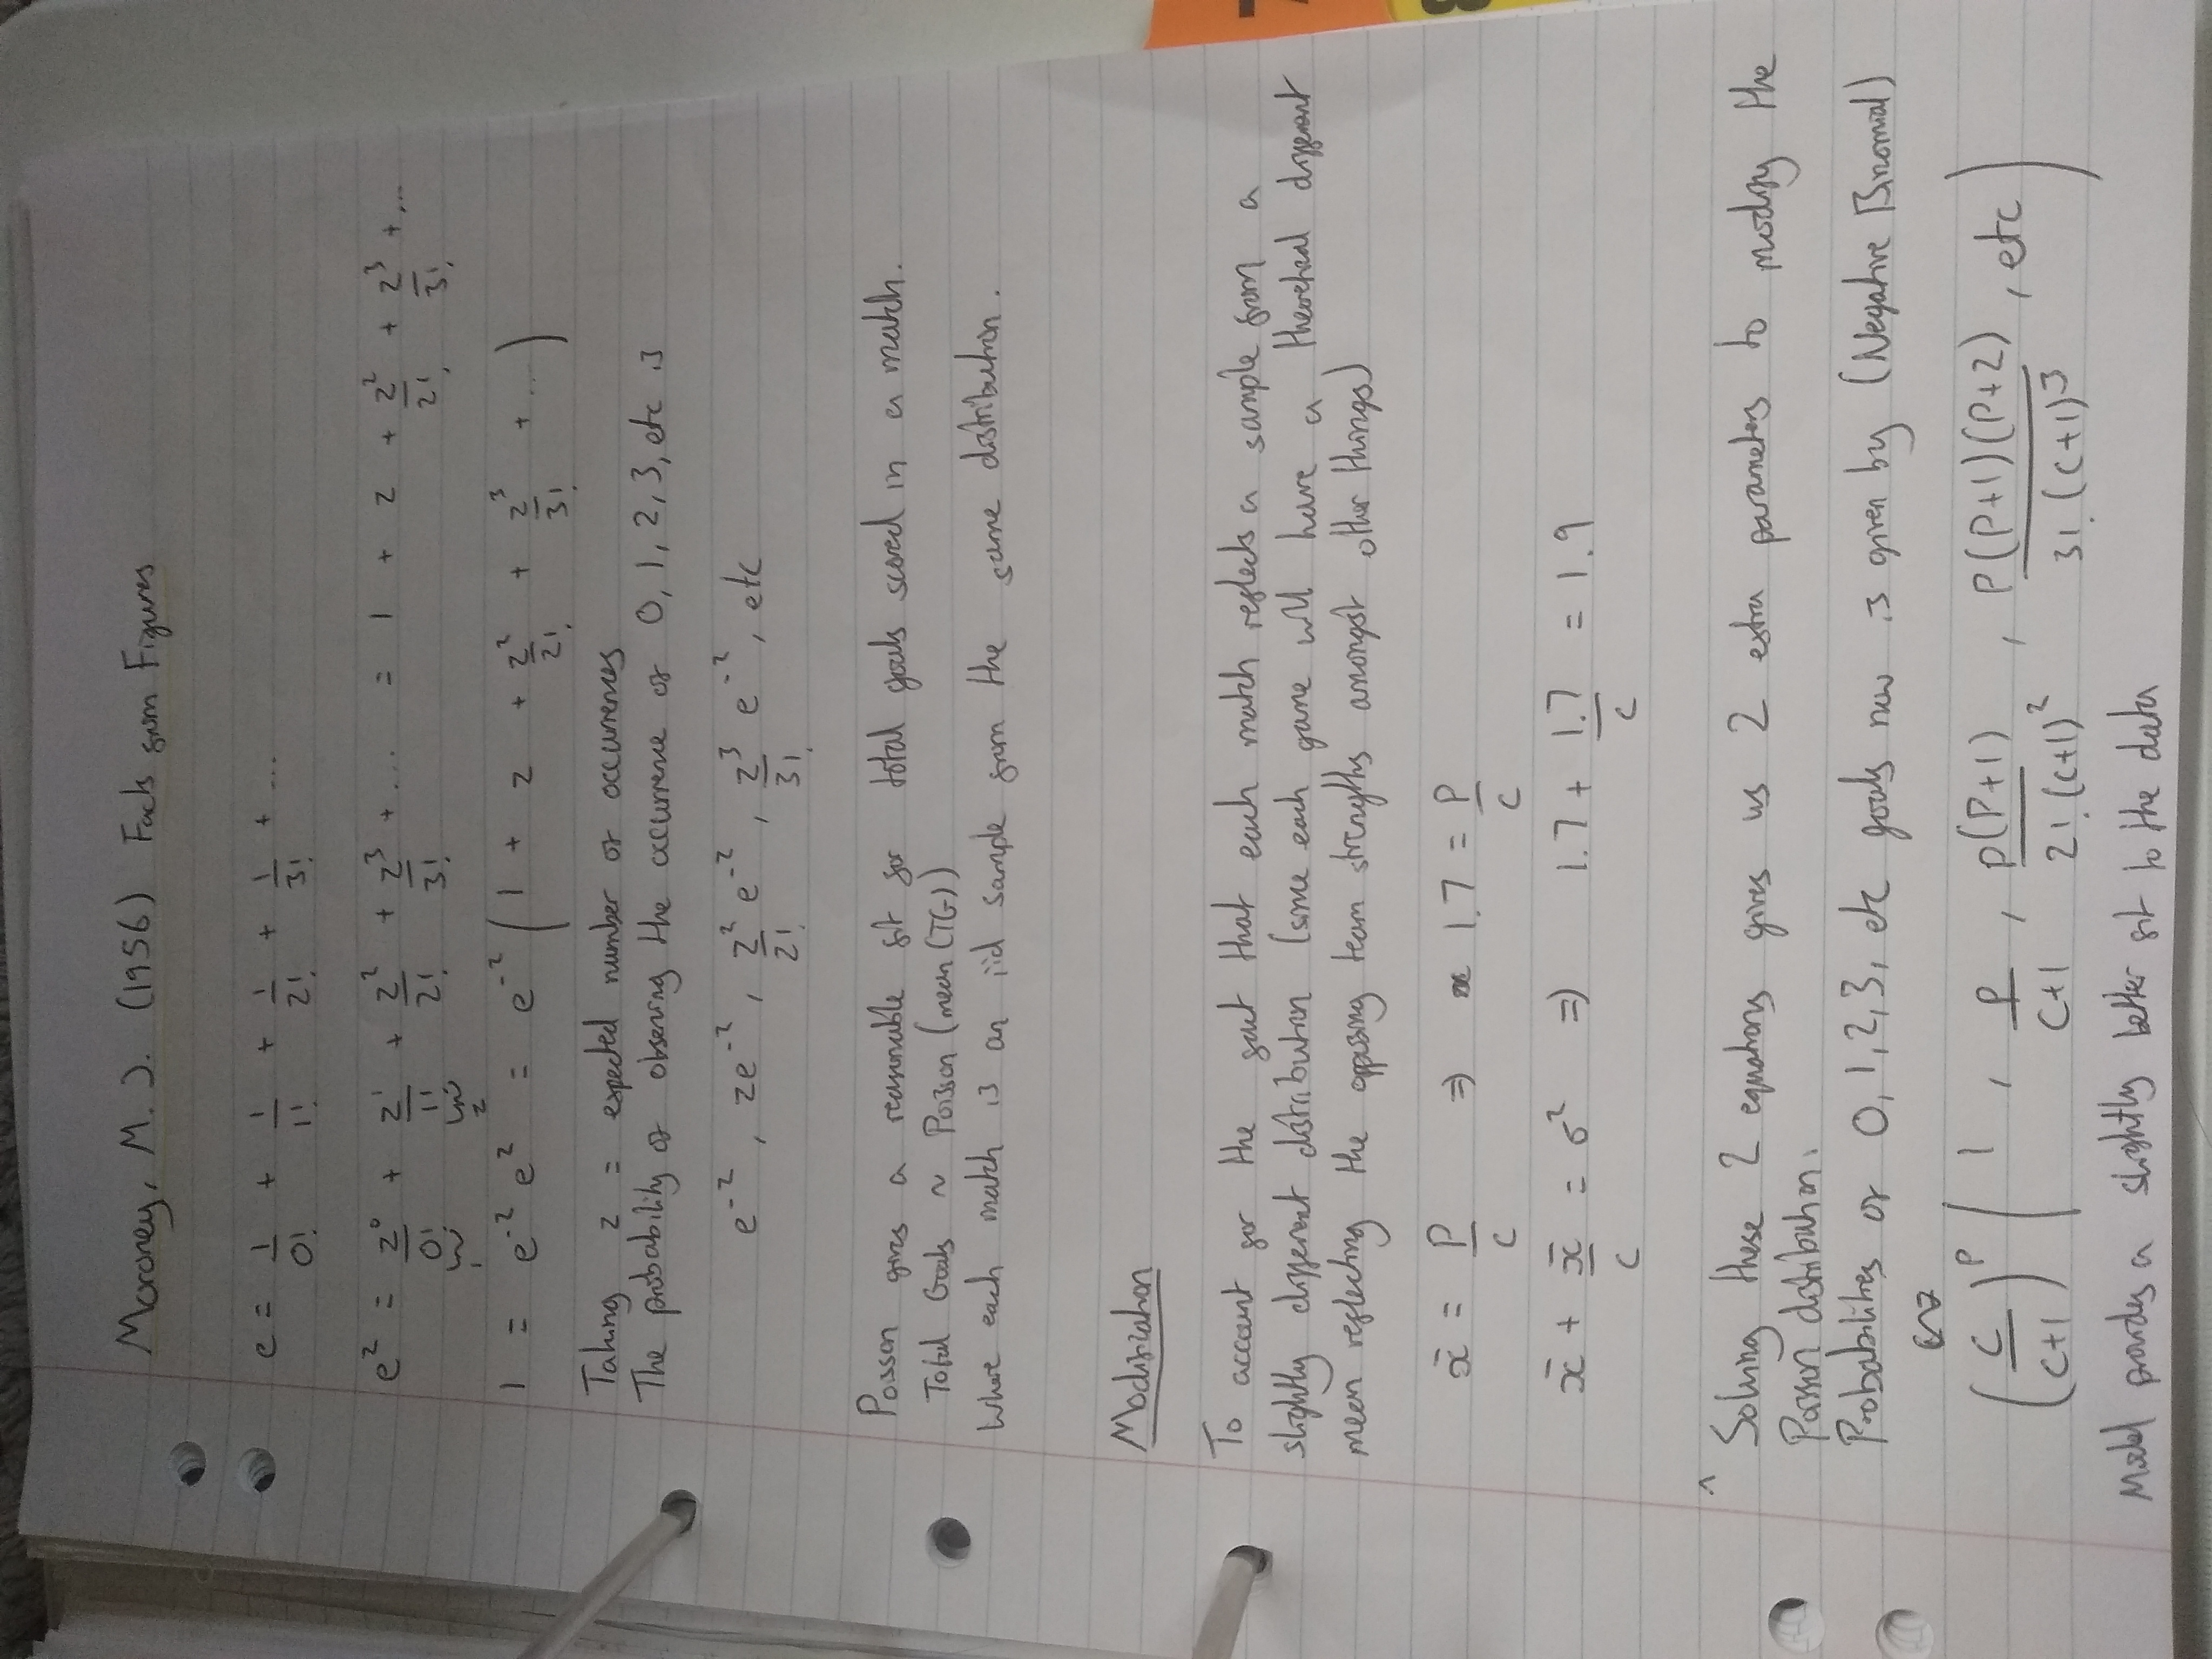 Moroney, M. J. (1956) Facts from Figures
e = 1/0! + 1/1! + 1/2! + 1/3! + ...
e^z = z^0/0! + z^1/1! + z^2/2! + z^3/3! + ... = 1 + z + z^2/2! + z^3/3! + ...
1 z
1 = e^-z e^z = e^-z (1 + z + z^2/2! + z^3/3! + ...)
Taking z = expected number of occurrences
The probability of observing the occurrence of 0, 1, 2, 3, etc is
e^-z, ze^-z, z^2/2! e^-z, z^3/3! e^-z, etc
Poisson gives a reasonable fit for total goals scored in a match.
Total Goals ~ Poisson (mean(TG))
Where each match is an iid sample from the same distribution.
Modification
To account for the fact that each match reflects a sample from a
slightly different distribution (since each game will have a theoretical different
mean reflecting the opposing team strengths amongst other things)
x̄ = P/c ⇒ 1.7 = P/c
x̄ + x̄/c = σ^2 ⇒ 1.7 + 1.7/c = 1.9
^ Solving these 2 equations gives us 2 extra parameters to modify the
Poisson distribution.
Probabilities of 0, 1, 2, 3, etc goals now is given by (Negative Binomial)
(c/(c+1))^P (1, P/(c+1), P(P+1)/(2!(c+1)^2), P(P+1)(P+2)/(3!(c+1)^3), etc)
Model provides a slightly better fit to the data